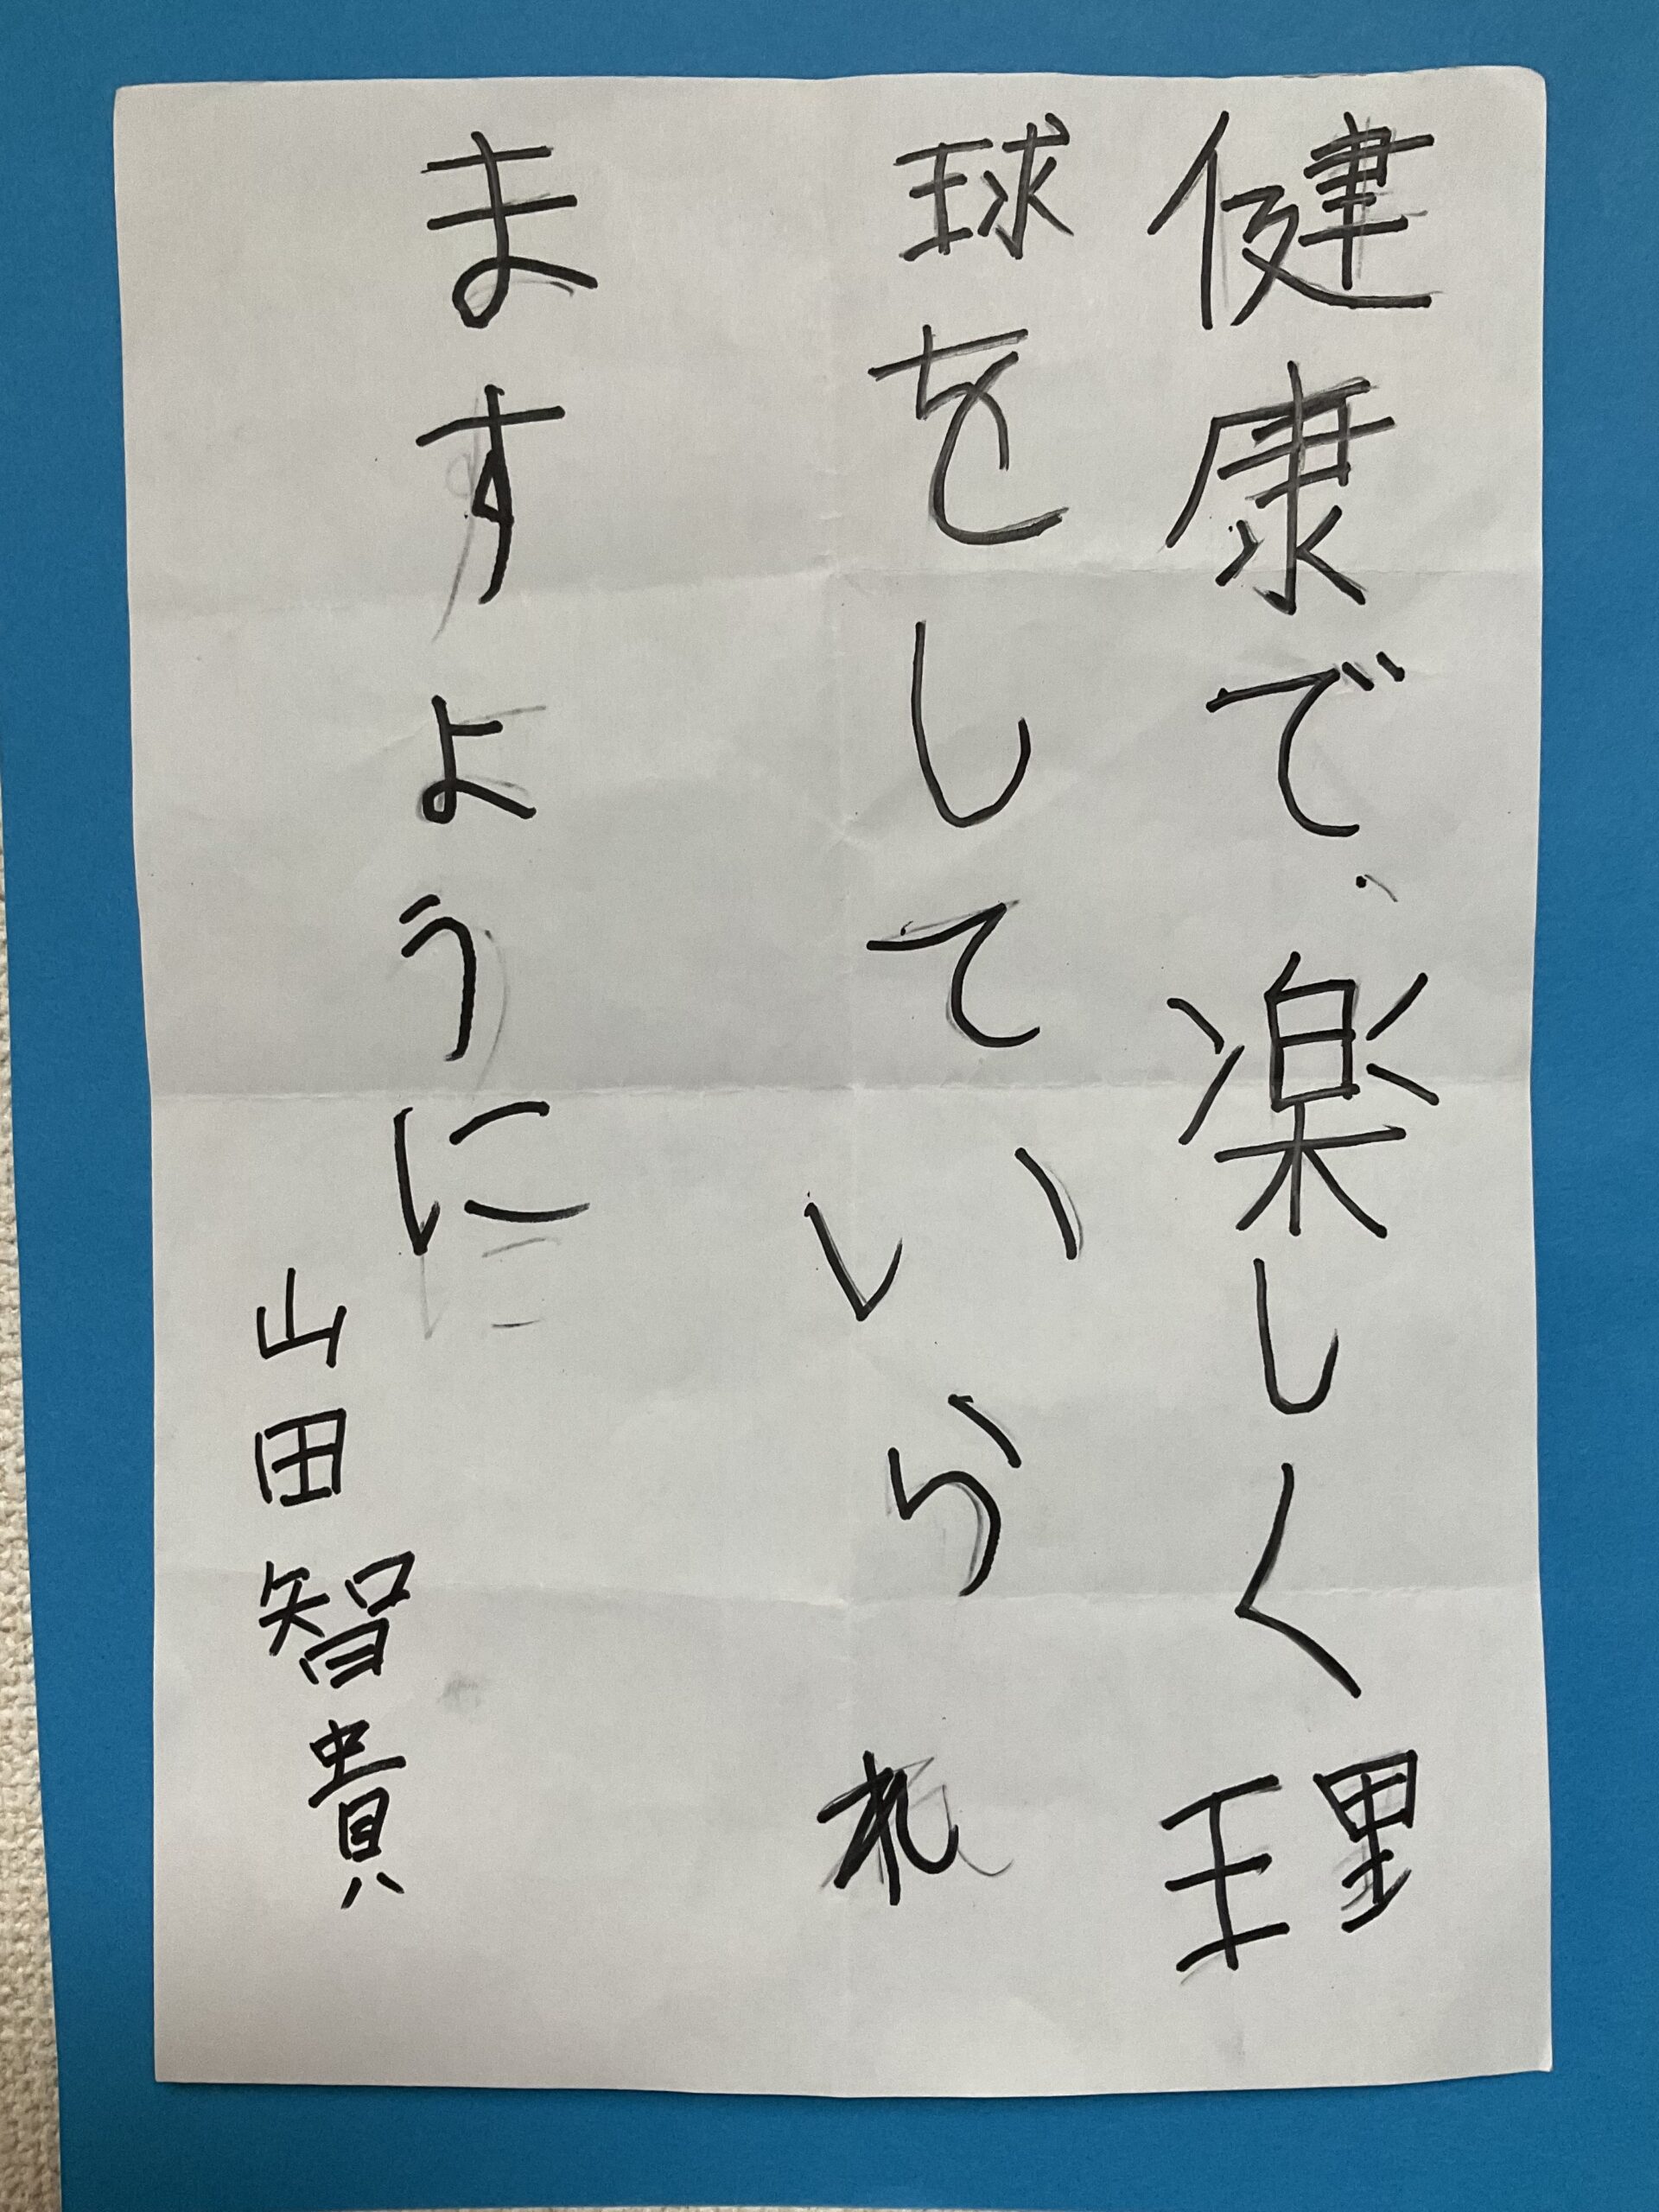 健康で楽しく理
球をしていられ
ますように
山田智貴